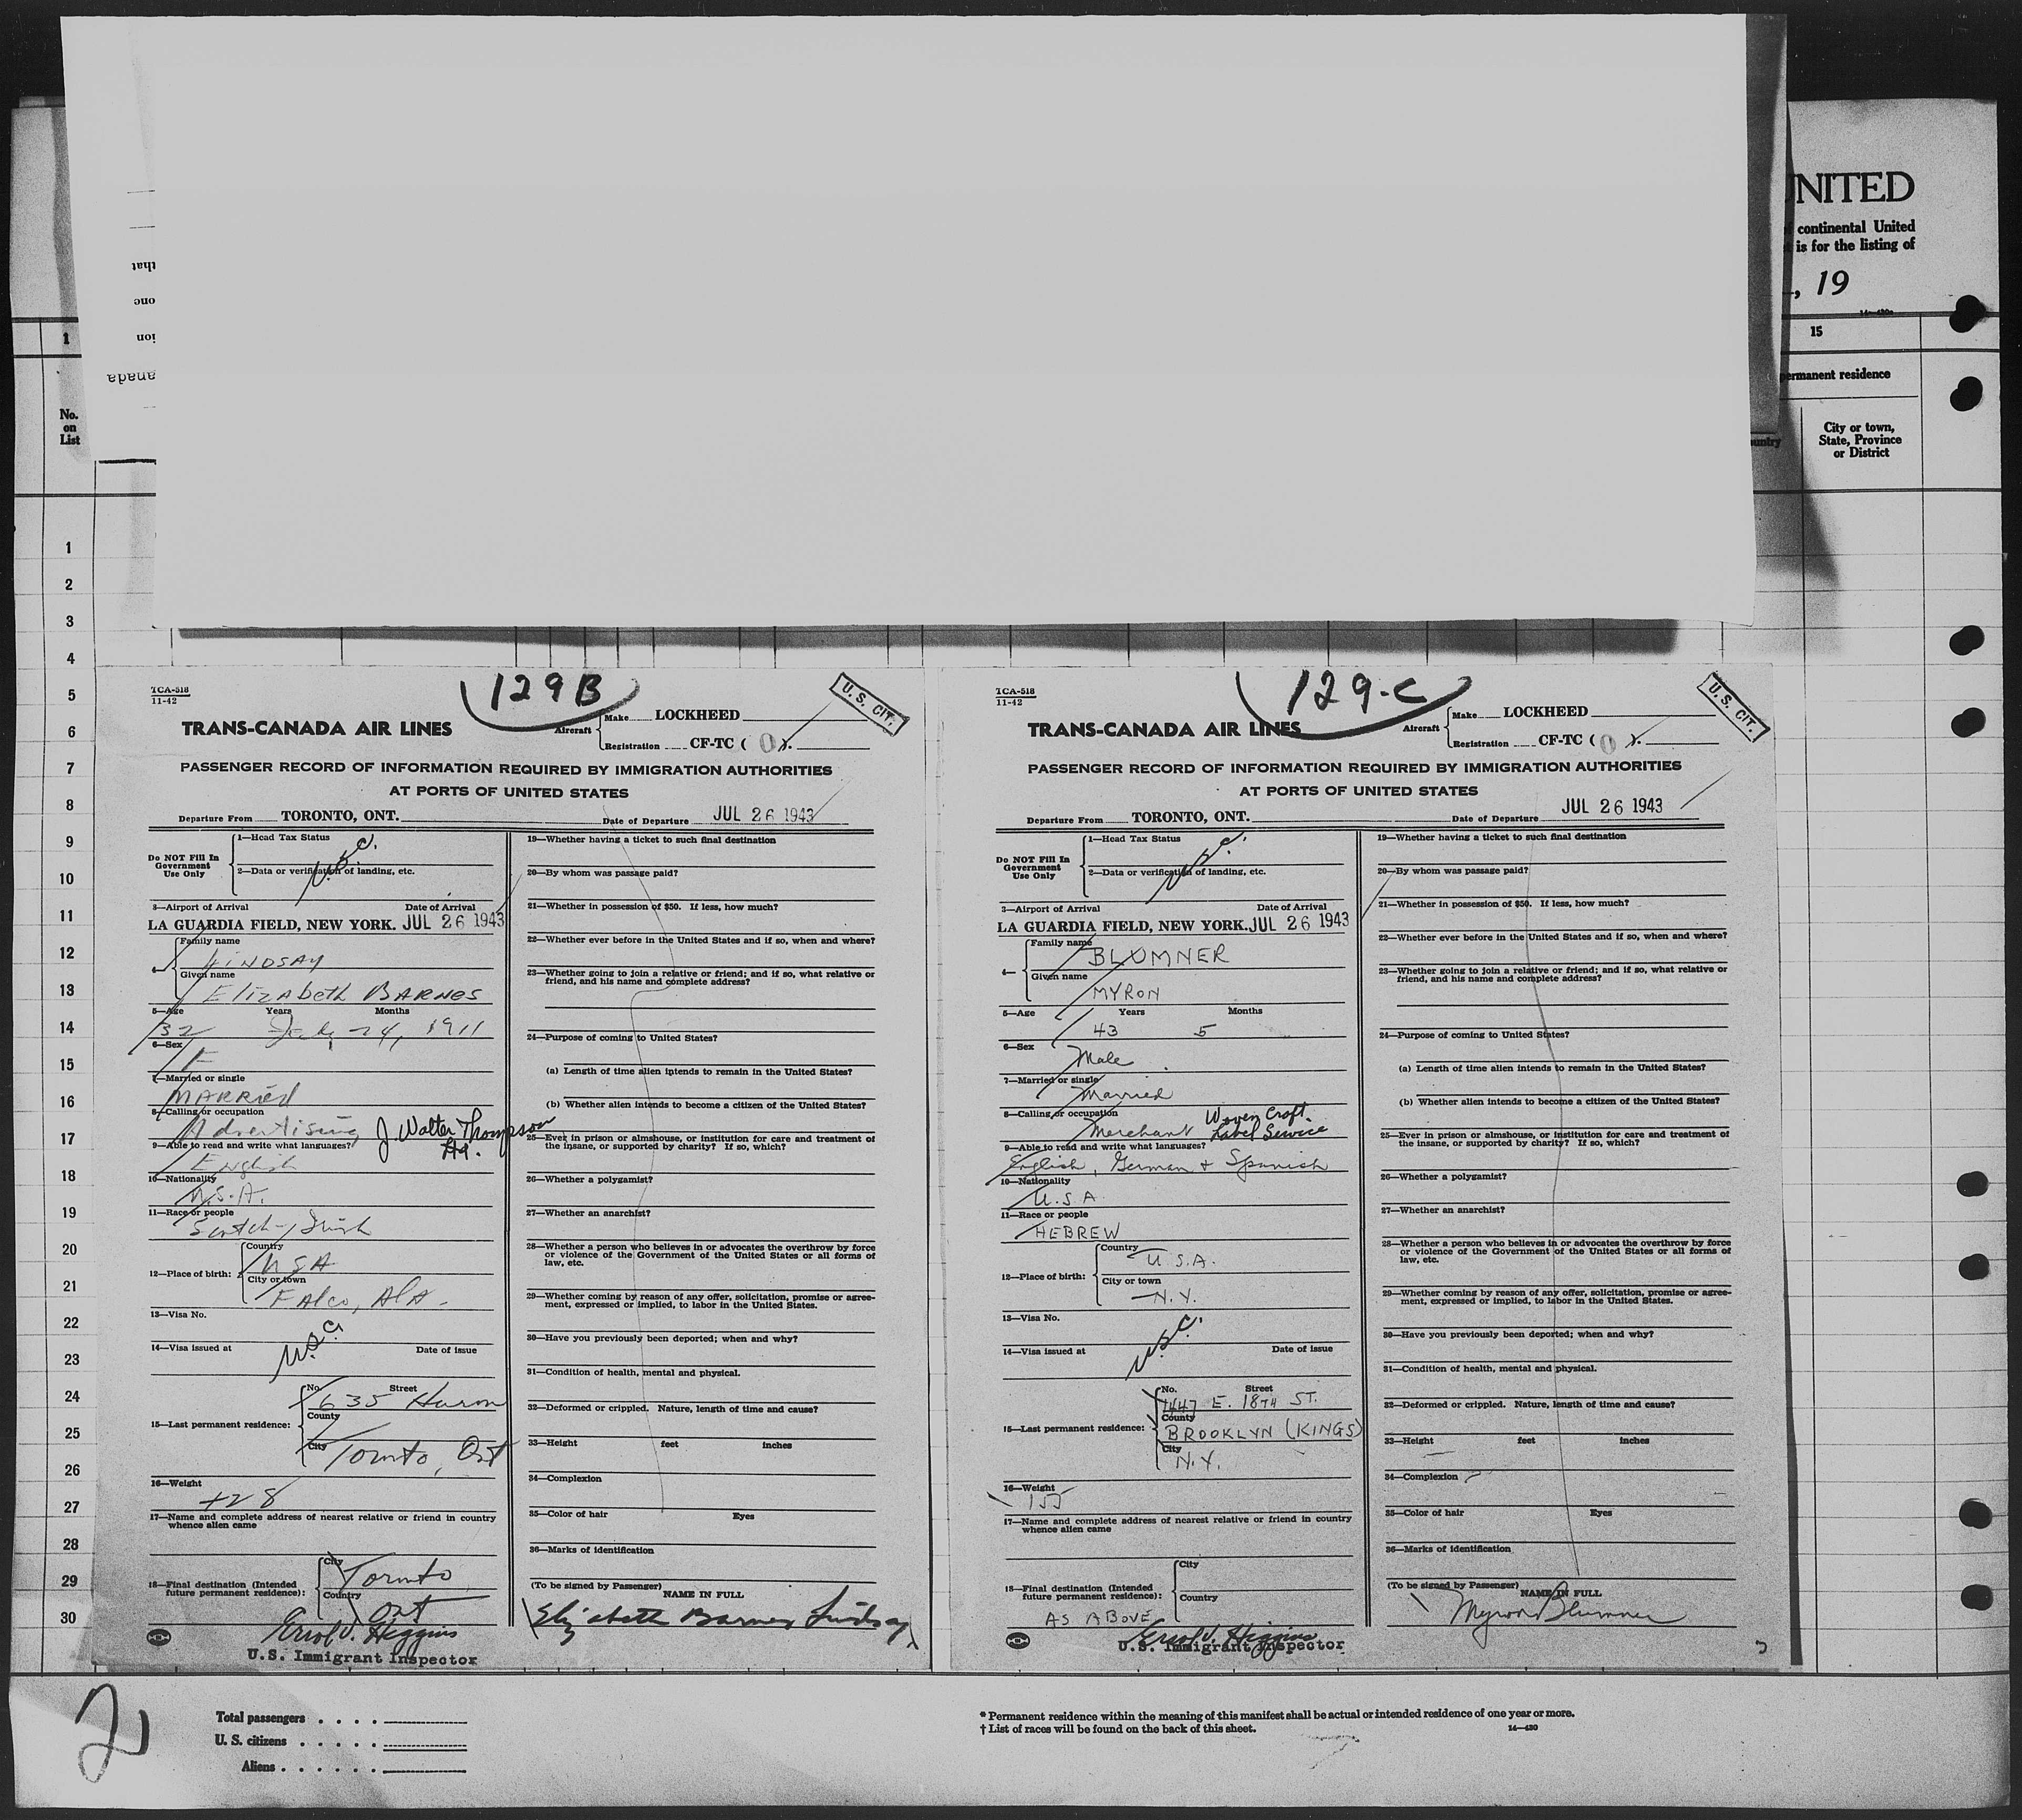 UNITED
continental United
is for the listing of
, 19
that
one
ion
anada
1
15
permanent residence
No.
on
List
City or town,
State, Province
or District
1
2
3
4
5
6
7
8
9
10
11
12
13
14
15
16
17
18
19
20
21
22
23
24
25
26
27
28
29
30
TCA-518
11-42
129B
U. S. CIT.
TRANS-CANADA AIR LINES
Aircraft
Make LOCKHEED
Registration CF-TC ( 0 ).
PASSENGER RECORD OF INFORMATION REQUIRED BY IMMIGRATION AUTHORITIES
AT PORTS OF UNITED STATES
Departure From TORONTO, ONT. Date of Departure JUL 26 1943
Do NOT Fill In
Government
Use Only
1—Head Tax Status
U.S.C.
2—Data or verification of landing, etc.
3—Airport of Arrival Date of Arrival
LA GUARDIA FIELD, NEW YORK. JUL 26 1943
4—
Family name
LINDSAY
Given name
Elizabeth BARNES
5—Age Years Months
32 July 24, 1911
6—Sex
F
7—Married or single
MARRIED
8—Calling or occupation
Advertising J. Walter Thompson
9—Able to read and write what languages?
English
10—Nationality
U.S.A.
11—Race or people
Scotch-Irish
12—Place of birth:
Country
USA
City or town
FAlco, AlA.
13—Visa No.
U.S.C.
14—Visa issued at Date of issue
15—Last permanent residence:
No. Street
635 Huron
County
City
Toronto, Ont
16—Weight
128
17—Name and complete address of nearest relative or friend in country
whence alien came
18—Final destination (Intended
future permanent residence):
City
Toronto
Country
Ont
Errol J. Higgins
U.S. Immigrant Inspector
19—Whether having a ticket to such final destination
20—By whom was passage paid?
21—Whether in possession of $50. If less, how much?
22—Whether ever before in the United States and if so, when and where?
23—Whether going to join a relative or friend; and if so, what relative or
friend, and his name and complete address?
24—Purpose of coming to United States?
(a) Length of time alien intends to remain in the United States?
(b) Whether alien intends to become a citizen of the United States?
25—Ever in prison or almshouse, or institution for care and treatment of
the insane, or supported by charity? If so, which?
26—Whether a polygamist?
27—Whether an anarchist?
28—Whether a person who believes in or advocates the overthrow by force
or violence of the Government of the United States or all forms of
law, etc.
29—Whether coming by reason of any offer, solicitation, promise or agree-
ment, expressed or implied, to labor in the United States.
30—Have you previously been deported; when and why?
31—Condition of health, mental and physical.
32—Deformed or crippled. Nature, length of time and cause?
33—Height feet inches
34—Complexion
35—Color of hair Eyes
36—Marks of identification
(To be signed by Passenger)
NAME IN FULL
Elizabeth Barnes Lindsay
TCA-518
11-42
129-C
U. S. CIT.
TRANS-CANADA AIR LINES
Aircraft
Make LOCKHEED
Registration CF-TC ( 0 ).
PASSENGER RECORD OF INFORMATION REQUIRED BY IMMIGRATION AUTHORITIES
AT PORTS OF UNITED STATES
Departure From TORONTO, ONT. Date of Departure JUL 26 1943
Do NOT Fill In
Government
Use Only
1—Head Tax Status
U.S.C.
2—Data or verification of landing, etc.
3—Airport of Arrival Date of Arrival
LA GUARDIA FIELD, NEW YORK. JUL 26 1943
4—
Family name
BLUMNER
Given name
MYRON
5—Age Years Months
43 5
6—Sex
Male
7—Married or single
Married
8—Calling or occupation Woven Craft
Merchant Label Service
9—Able to read and write what languages?
English, German + Spanish
10—Nationality
U.S.A
11—Race or people
HEBREW
12—Place of birth:
Country
U.S.A.
City or town
N.Y.
13—Visa No.
U.S.C.
14—Visa issued at Date of issue
15—Last permanent residence:
No. Street
1447 E. 18TH ST.
County
BROOKLYN (KINGS)
City
N.Y.
16—Weight
155
17—Name and complete address of nearest relative or friend in country
whence alien came
18—Final destination (Intended
future permanent residence):
City
Country
AS ABOVE
Errol J. Higgins
U.S. Immigrant Inspector
19—Whether having a ticket to such final destination
20—By whom was passage paid?
21—Whether in possession of $50. If less, how much?
22—Whether ever before in the United States and if so, when and where?
23—Whether going to join a relative or friend; and if so, what relative or
friend, and his name and complete address?
24—Purpose of coming to United States?
(a) Length of time alien intends to remain in the United States?
(b) Whether alien intends to become a citizen of the United States?
25—Ever in prison or almshouse, or institution for care and treatment of
the insane, or supported by charity? If so, which?
26—Whether a polygamist?
27—Whether an anarchist?
28—Whether a person who believes in or advocates the overthrow by force
or violence of the Government of the United States or all forms of
law, etc.
29—Whether coming by reason of any offer, solicitation, promise or agree-
ment, expressed or implied, to labor in the United States.
30—Have you previously been deported; when and why?
31—Condition of health, mental and physical.
32—Deformed or crippled. Nature, length of time and cause?
33—Height feet inches
34—Complexion
35—Color of hair Eyes
36—Marks of identification
(To be signed by Passenger)
NAME IN FULL
Myron Blumner
2
Total passengers
U. S. citizens
Aliens
* Permanent residence within the meaning of this manifest shall be actual or intended residence of one year or more.
† List of races will be found on the back of this sheet. 14—430